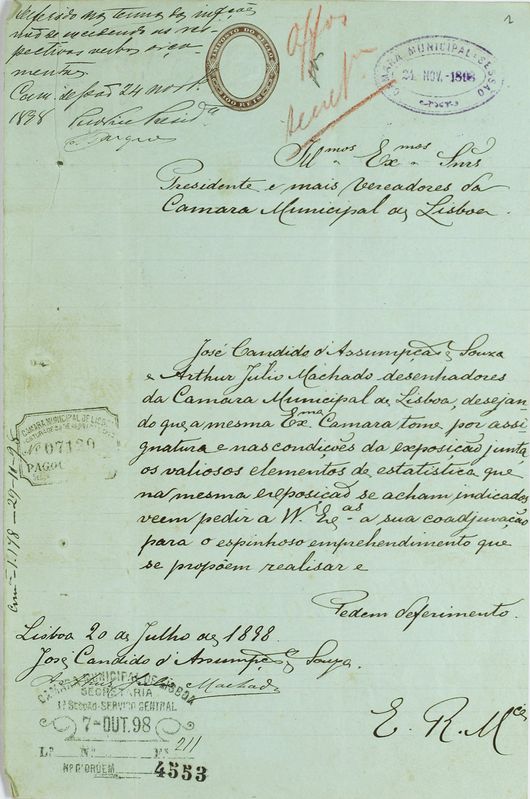 Deferido nos termos da informação
não excedendo as res-
pectivas verbas orça-
mentaes
Cam. de 24 nov.
1898
IMPOSTO DO SELLO
100 REIS
CAMARA MUNICIPAL-SESSÃO
24 NOV. 1898
1
Ill.mos Ex.mos Snrs
Presidente e mais Vereadores da
Camara Municipal de Lisboa.
José Candido d'Assumpção Souza
e Arthur Julio Machado desenhadores
da Camara Municipal de Lisboa, desejan
do que a mesma Ex.ma Camara tome por assi
gnatura e nas condições da exposição junta
os valiosos elementos de estatistica que
na mesma exposição se acham indicados
veem pedir a V.as Ex.as a sua coadjuvação
para o espinhoso emprehendimento que
se propõem realisar e
Pedem deferimento.
CAMARA MUNICIPAL DE LISBOA
Nº 07129
PAGOU
Lisboa 20 de Julho de 1898
José Candido d'Assumpção Souza.
Arthur Julio Machado
E. R. M.ce
CAMARA MUNICIPAL DE LISBOA
SECRETARIA
1ª SECÇÃO-SERVIÇO CENTRAL
7-OUT. 98
Lº Nº Fs 211
Nº D'ORDEM 4553